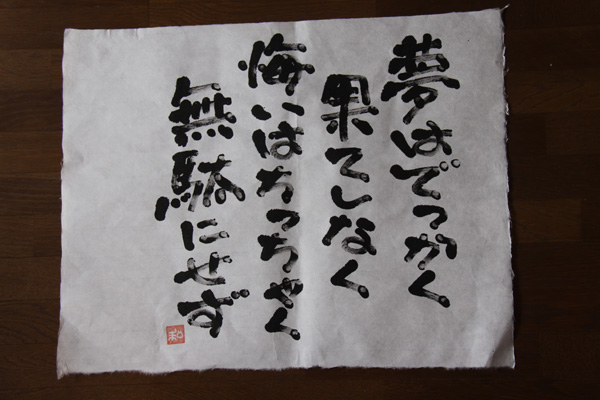 夢はでっかく
果てしなく
悔いはちっちゃく
無駄にせず
和